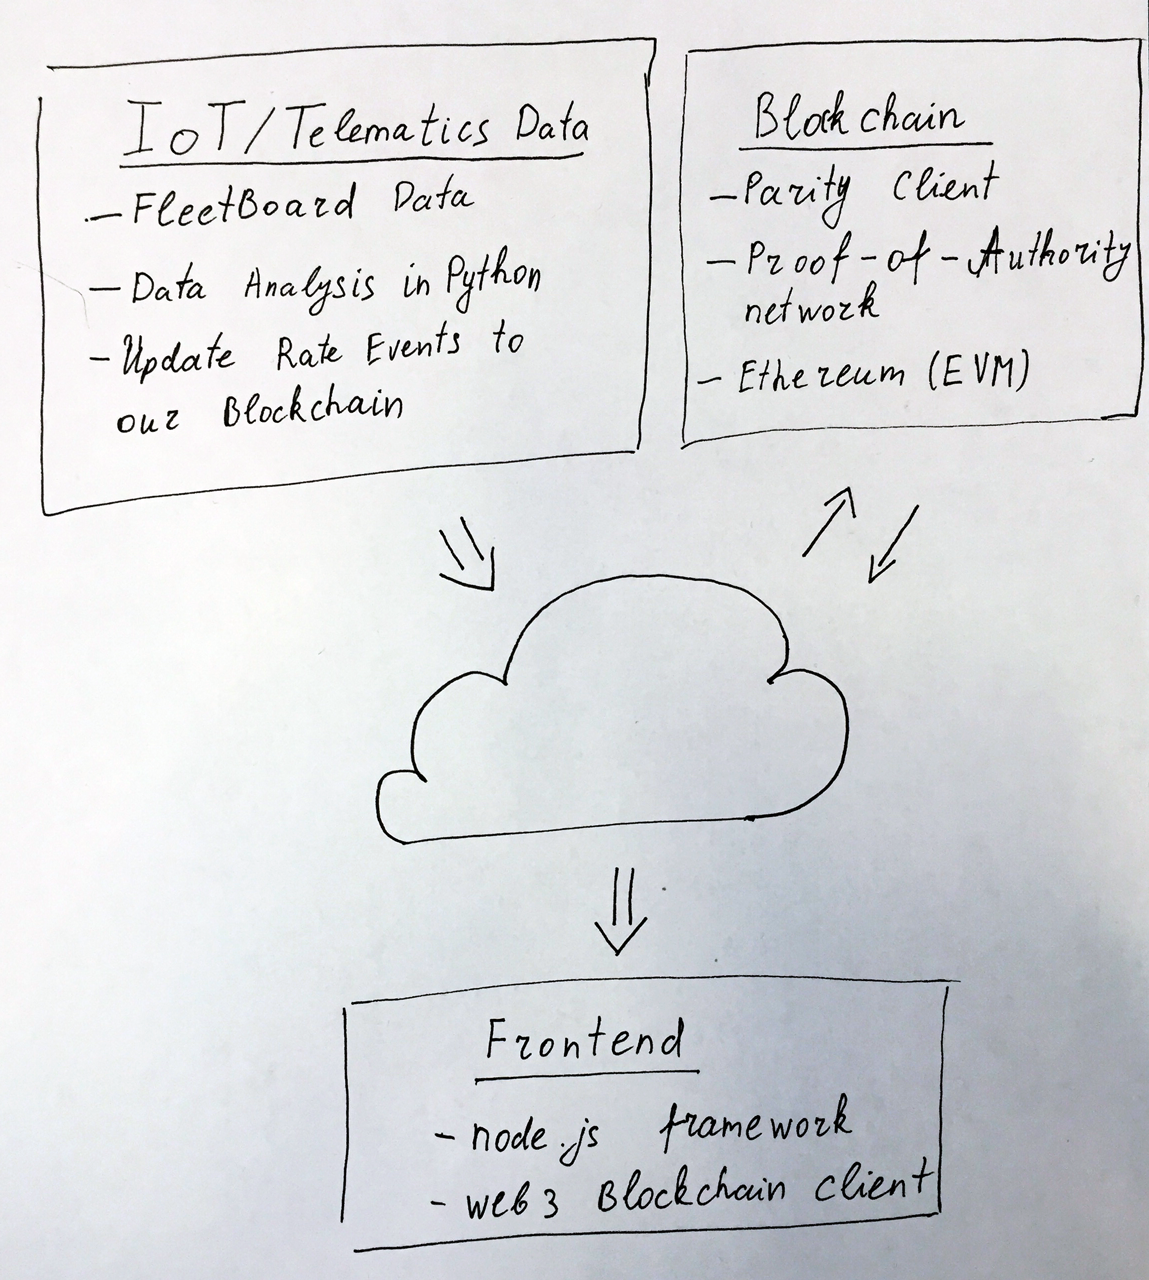 IoT/Telematics Data
- FleetBoard Data
- Data Analysis in Python
- Update Rate Events to
our Blockchain
Blockchain
- Parity Client
- Proof-of-Authority
network
- Ethereum (EVM)
Frontend
- node.js framework
- web3 Blockchain client